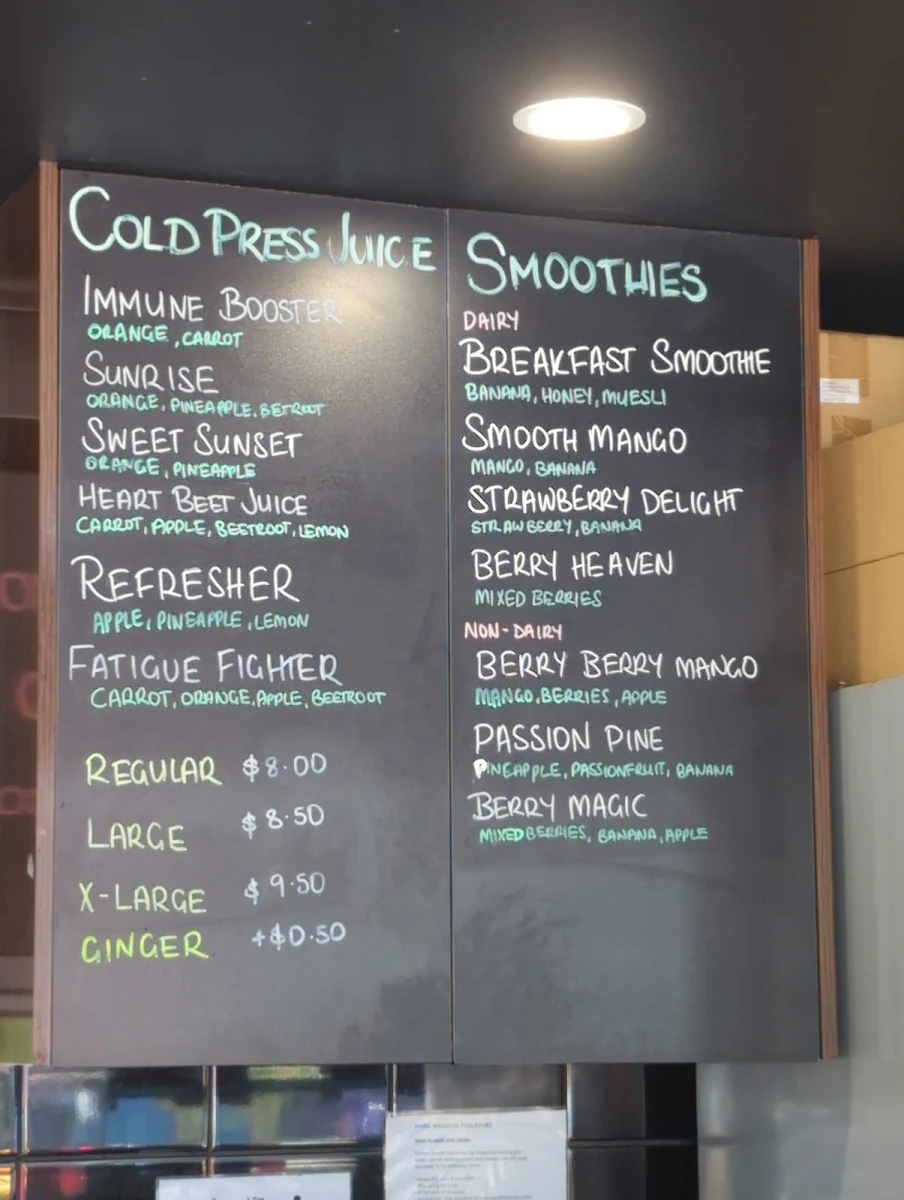 COLD PRESS JUICE
IMMUNE BOOSTER
ORANGE, CARROT
SUNRISE
ORANGE, PINEAPPLE, BETROOT
SWEET SUNSET
ORANGE, PINEAPPLE
HEART BEET JUICE
CARROT, APPLE, BEETROOT, LEMON
REFRESHER
APPLE, PINEAPPLE, LEMON
FATIGUE FIGHTER
CARROT, ORANGE, APPLE, BEETROOT
REGULAR $8.00
LARGE $8.50
X-LARGE $9.50
GINGER +$0.50
SMOOTHIES
DAIRY
BREAKFAST SMOOTHIE
BANANA, HONEY, MUESLI
SMOOTH MANGO
MANGO, BANANA
STRAWBERRY DELIGHT
STRAWBERRY, BANANA
BERRY HEAVEN
MIXED BERRIES
NON-DAIRY
BERRY BERRY MANGO
MANGO, BERRIES, APPLE
PASSION PINE
PINEAPPLE, PASSIONFRUIT, BANANA
BERRY MAGIC
MIXED BERRIES, BANANA, APPLE